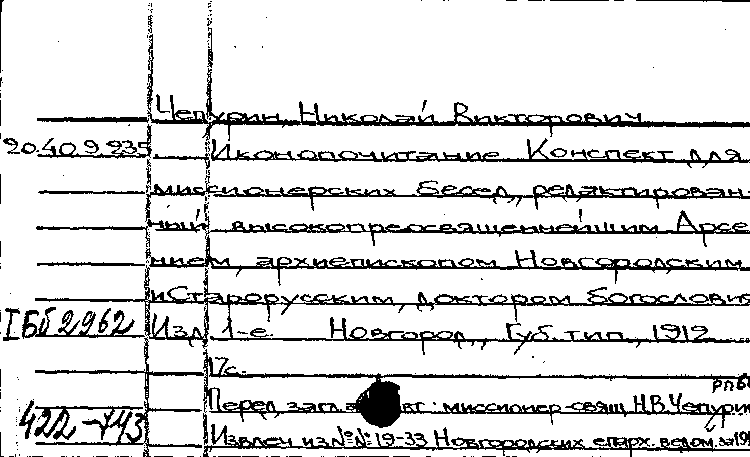 Чепурин, Николай Викторович
20.40.9.235 Иконопочитание Конспект для
миссионерских бесед, редактирован-
ный высокопреосвященнейшим Арсе
нием, архиепископом Новгородским
и Старорусским, доктором богословия
ІБб2962 Изд 1-е Новгород, Губ. тип., 1912
17с.
РПБ
Перед загл авт: миссионер-свящ Н.В.Чепурин
422-743 Извлеч из №№ 19-33 Новгородских епарх. ведом. за 191